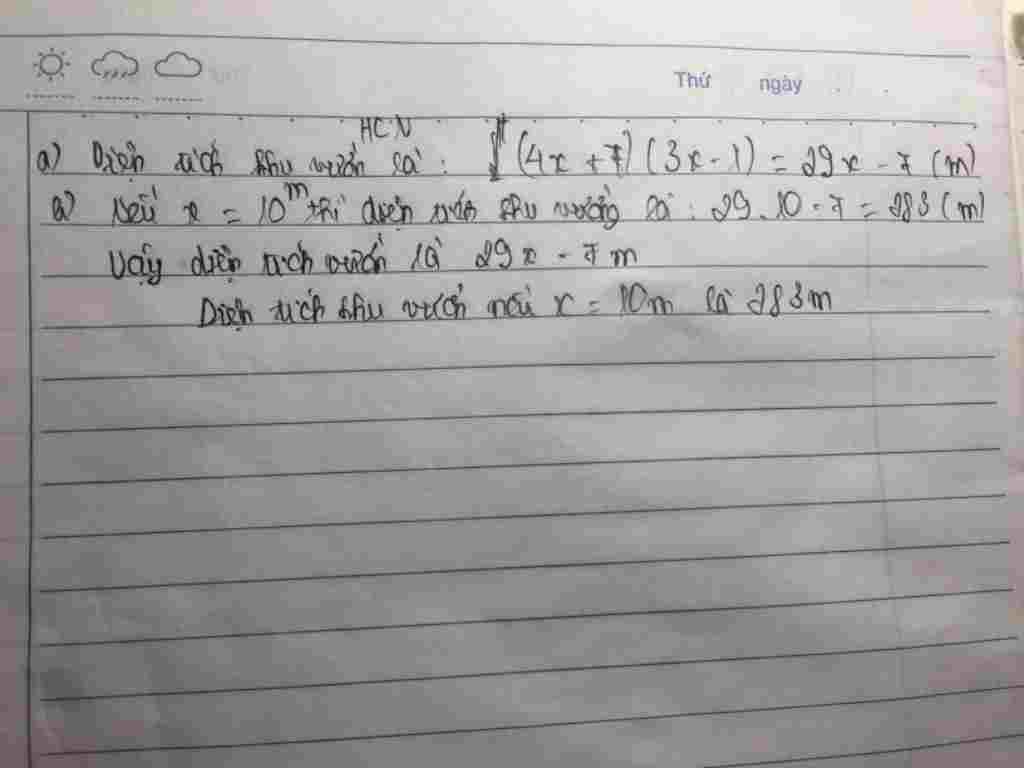 Thứ ngày
HCN
a) Diện tích khu vườn là: (4x + 7) (3x - 1) = 29x - 7 (m)
a) Nếu x = 10m thì diện tích khu vườn là: 29.10 - 7 = 283 (m)
Vậy diện tích vườn là 29x - 7 m
Diện tích khu vườn nếu x = 10m là 283m